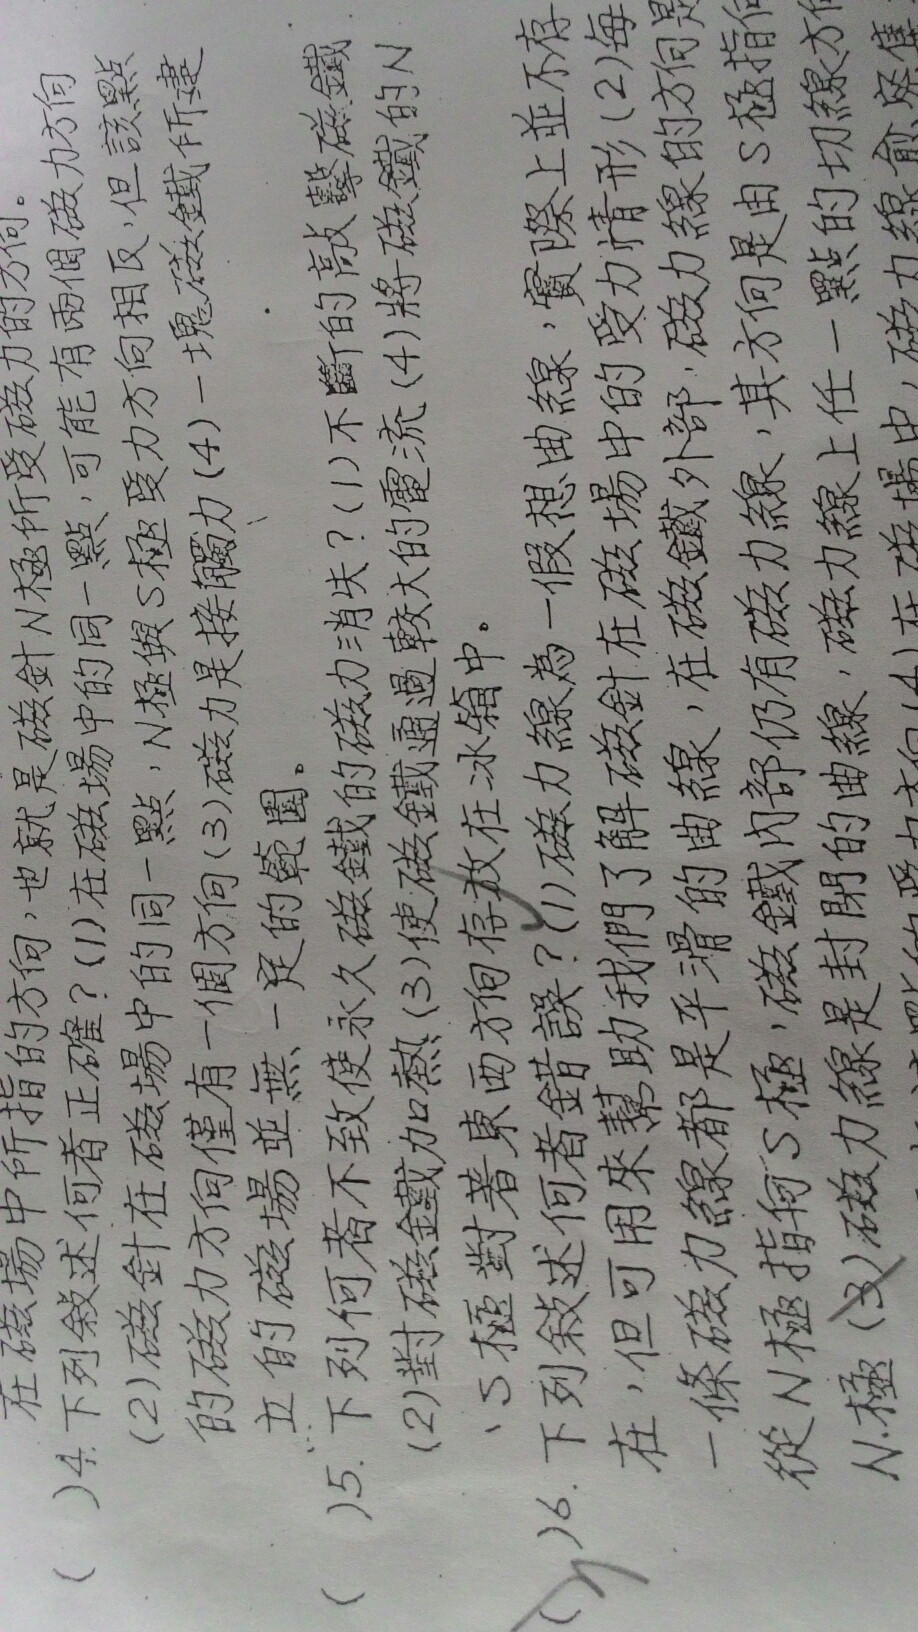 在磁場中所指的方向，也就是磁針N極所受磁力的方向。
( )4.下列敘述何者正確？(1)在磁場中的同一點，可能有兩個磁力方向
(2)磁針在磁場中的同一點，N極與S極受力方向相反，但該點
的磁力方向僅有一個方向(3)磁力是接觸力(4)一塊磁鐵所建
立的磁場並無一定的範圍。
( )5.下列何者不致使永久磁鐵的磁力消失？(1)不斷的敲擊磁鐵
(2)對磁鐵加熱(3)使磁鐵通過較大的電流(4)將磁鐵的N
、S極對著東西方向存放在冰箱中。
( )6.下列敘述何者錯誤？(1)磁力線為一假想曲線，實際上並不存
在，但可用來幫助我們了解磁針在磁場中的受力情形(2)每
一條磁力線都是平滑的曲線，在磁鐵外部，磁力線的方向是
從N極指向S極，磁鐵內部仍有磁力線，其方向是由S極指向
N極(3)磁力線是封閉的曲線，磁力線上任一點的切線方向
(4)在磁場中，磁力線愈密集